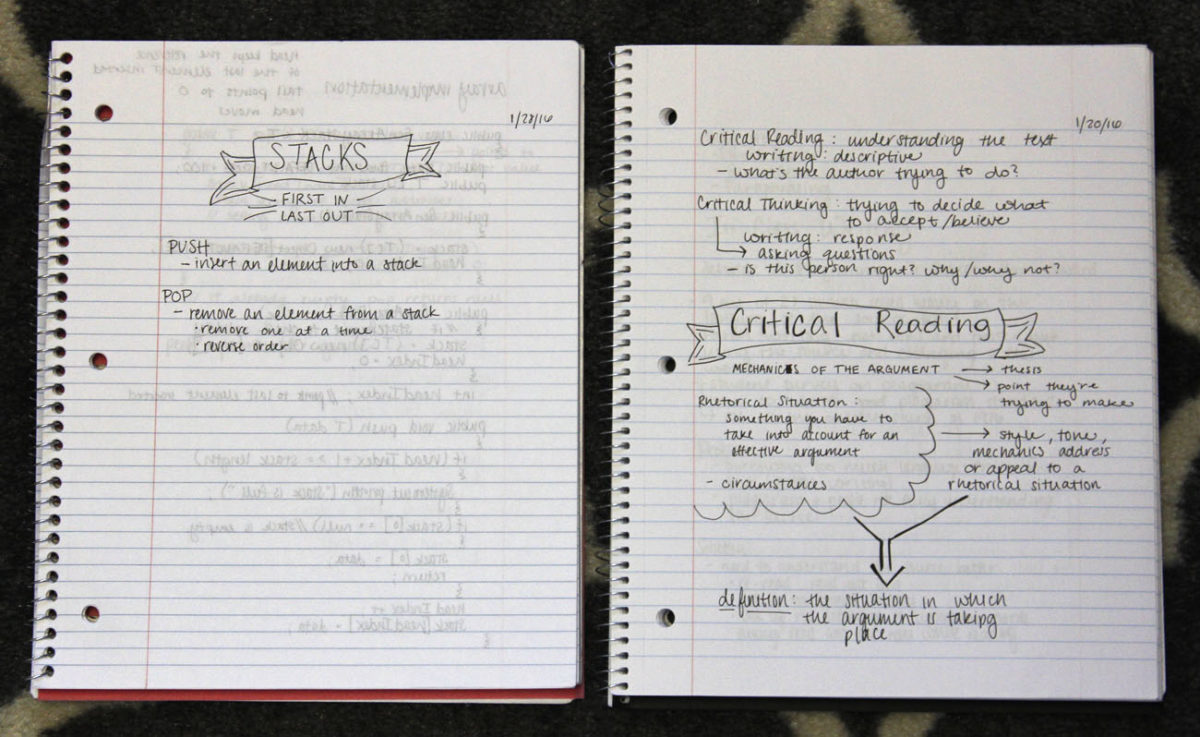 1/28/16
STACKS
FIRST IN
LAST OUT
PUSH
- insert an element into a stack
POP
- remove an element from a stack
· remove one at a time
· reverse order
1/20/16
Critical Reading: understanding the text
writing: descriptive
- what's the author trying to do?
Critical Thinking: trying to decide what
to accept/believe
writing: response
→ asking questions
- is this person right? why/why not?
Critical Reading
MECHANICS OF THE ARGUMENT → thesis
→ point they're
trying to make
Rhetorical Situation:
something you have to
take into account for an
effective argument
- circumstances
→ style, tone,
mechanics address
or appeal to a
rhetorical situation
definition: the situation in which
the argument is taking
place